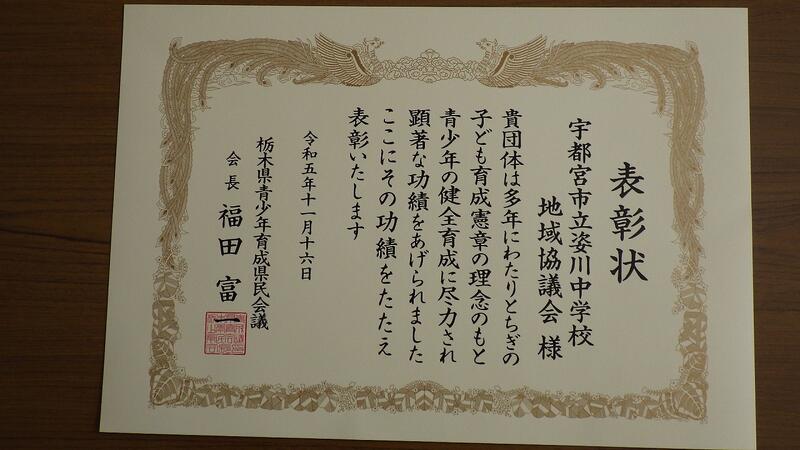 表彰状
宇都宮市立姿川中学校
地域協議会 様
貴団体は多年にわたりとちぎの
子ども育成憲章の理念のもと
青少年の健全育成に尽力され
顕著な功績をあげられました
ここにその功績をたたえ
表彰いたします
令和五年十一月十六日
栃木県青少年育成県民会議
会長 福田富一